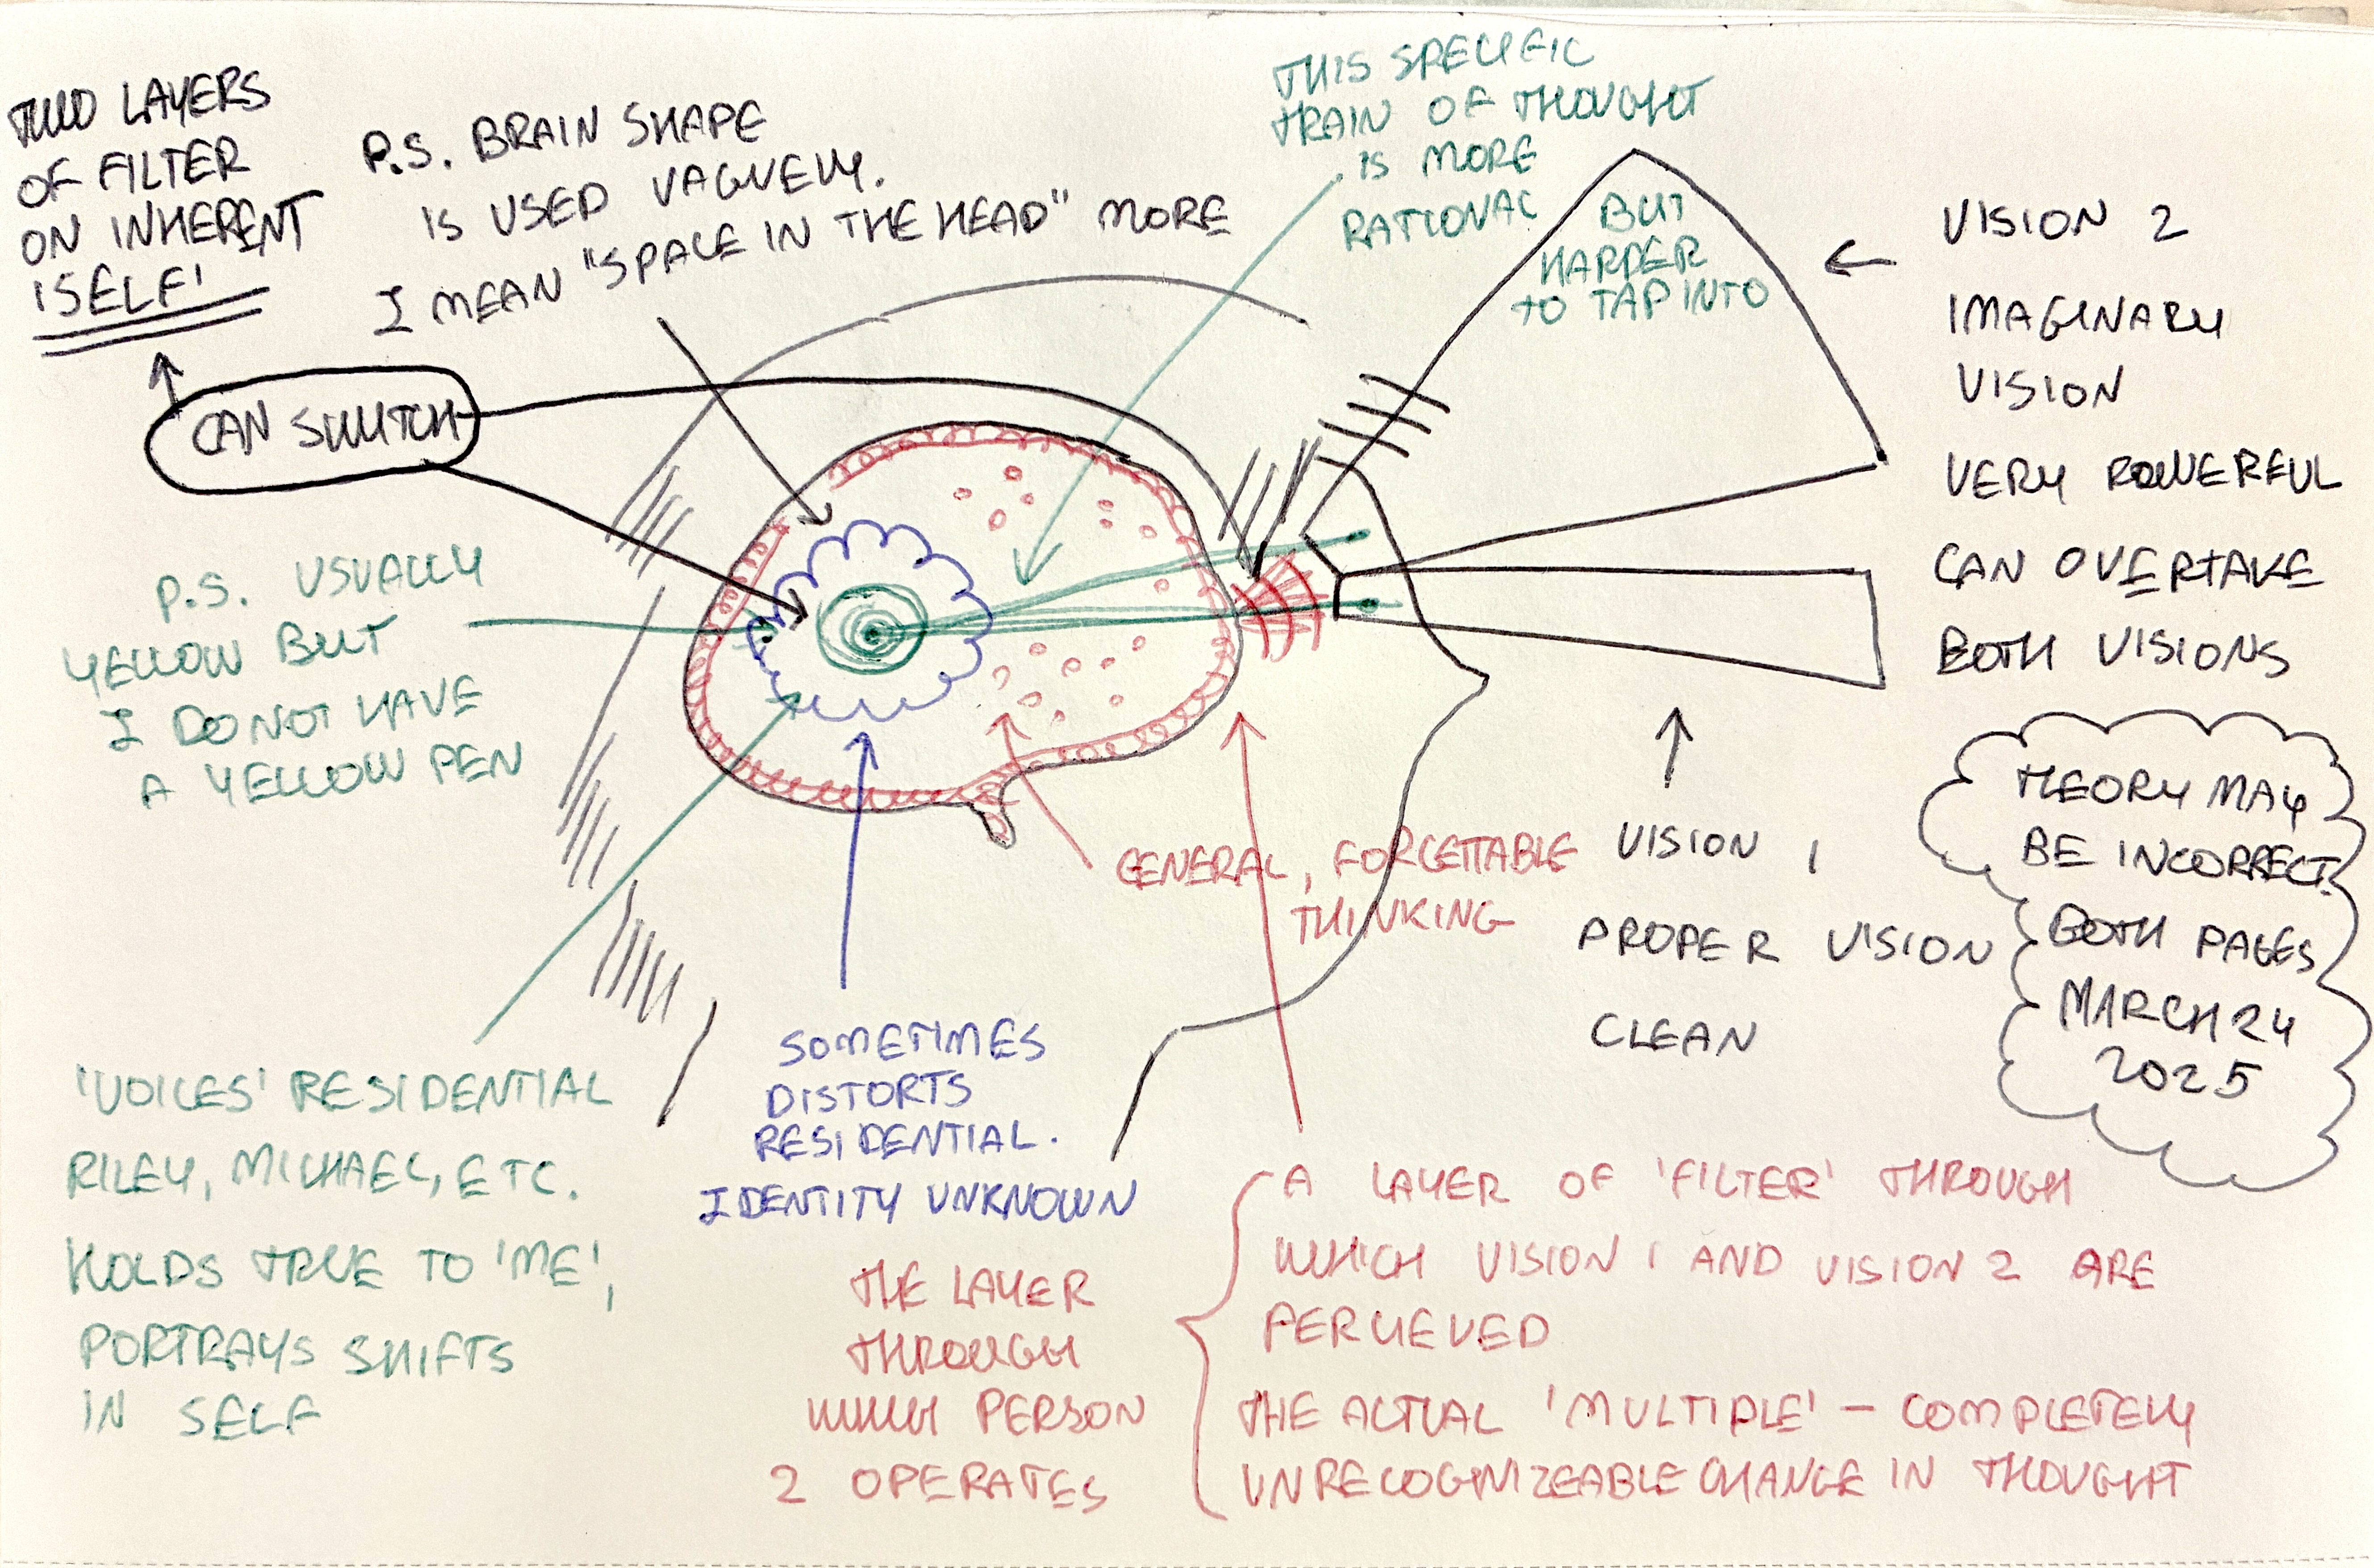 TWO LAYERS
OF FILTER
ON INHERENT
'SELF'
CAN SWITCH
P.S. BRAIN SHAPE
IS USED VAGUELY.
I MEAN "SPACE IN THE HEAD" MORE
THIS SPECIFIC
TRAIN OF THOUGHT
IS MORE
RATIONAL
BUT
HARDER
TO TAP INTO
VISION 2
IMAGINARY
VISION
VERY POWERFUL
CAN OVERTAKE
BOTH VISIONS
P.S. USUALLY
YELLOW BUT
I DO NOT HAVE
A YELLOW PEN
GENERAL, FORGETTABLE
THINKING
VISION 1
PROPER VISION
CLEAN
THEORY MAY
BE INCORRECT.
BOTH PAGES
MARCH 24
2025
'VOICES' RESIDENTIAL
RILEY, MICHAEL, ETC.
HOLDS TRUE TO 'ME',
PORTRAYS SHIFTS
IN SELF
SOMETIMES
DISTORTS
RESIDENTIAL.
IDENTITY UNKNOWN
THE LAYER
THROUGH
WHICH PERSON
2 OPERATES
A LAYER OF 'FILTER' THROUGH
WHICH VISION 1 AND VISION 2 ARE
PERCIEVED
THE ACTUAL 'MULTIPLE' – COMPLETELY
UNRECOGNIZEABLE CHANGE IN THOUGHT